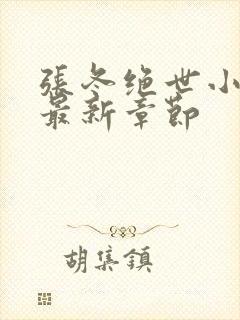 張冬绝世小
最新章節
胡集鎮